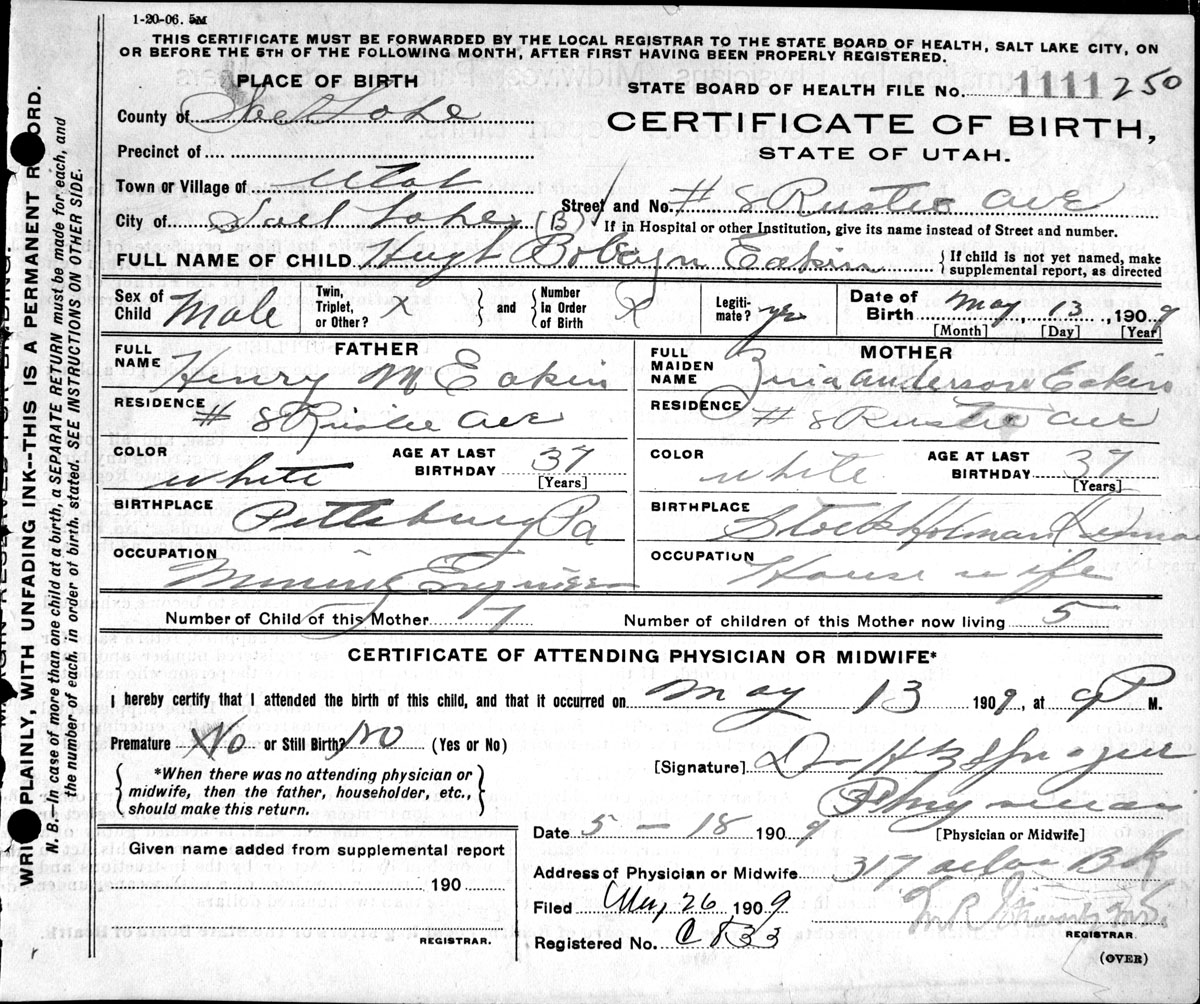 1-20-06. 5M
THIS CERTIFICATE MUST BE FORWARDED BY THE LOCAL REGISTRAR TO THE STATE BOARD OF HEALTH, SALT LAKE CITY, ON
OR BEFORE THE 5TH OF THE FOLLOWING MONTH, AFTER FIRST HAVING BEEN PROPERLY REGISTERED.
PLACE OF BIRTH
STATE BOARD OF HEALTH FILE No. 1111 250
County of Salt Lake
CERTIFICATE OF BIRTH,
Precinct of
STATE OF UTAH.
Town or Village of Utah
Street and No. # 8 Rustic Ave
City of Salt Lake (B)
If in Hospital or other Institution, give its name instead of Street and number.
FULL NAME OF CHILD Hugh Eakin
{ If child is not yet named, make
supplemental report, as directed
Sex of Child Male
Twin, Triplet, or Other? X } and { Number in Order of Birth X
Legiti- mate? yes
Date of Birth May, 13, 1909
[Month] [Day] [Year]
FATHER
FULL NAME Henry M Eakin
RESIDENCE # 8 Rustic Ave
COLOR white
AGE AT LAST BIRTHDAY 37
[Years]
BIRTHPLACE Pittsburg Pa
OCCUPATION Mining Engineer
MOTHER
FULL MAIDEN NAME Anderson Eakin
RESIDENCE # 8 Rustic Ave
COLOR white
AGE AT LAST BIRTHDAY 37
[Years]
BIRTHPLACE
OCCUPATION House wife
Number of Child of this Mother 7
Number of children of this Mother now living 5
CERTIFICATE OF ATTENDING PHYSICIAN OR MIDWIFE*
I hereby certify that I attended the birth of this child, and that it occurred on May 13 1909, at 9 P M.
Premature No or Still Birth? No (Yes or No)
{ *When there was no attending physician or
midwife, then the father, householder, etc.,
should make this return. }
[Signature] Dr H B Sprague
Physician
[Physician or Midwife]
Date 5 - 18 1909
Address of Physician or Midwife 317
Filed May 26 1909
Registered No. C 833
REGISTRAR.
(OVER)
Given name added from supplemental report
190
REGISTRAR.
WRITE PLAINLY, WITH UNFADING INK--THIS IS A PERMANENT RECORD.
N. B.—In case of more than one child at a birth, a SEPARATE RETURN must be made for each, and
the number of each, in order of birth, stated. SEE INSTRUCTIONS ON OTHER SIDE.